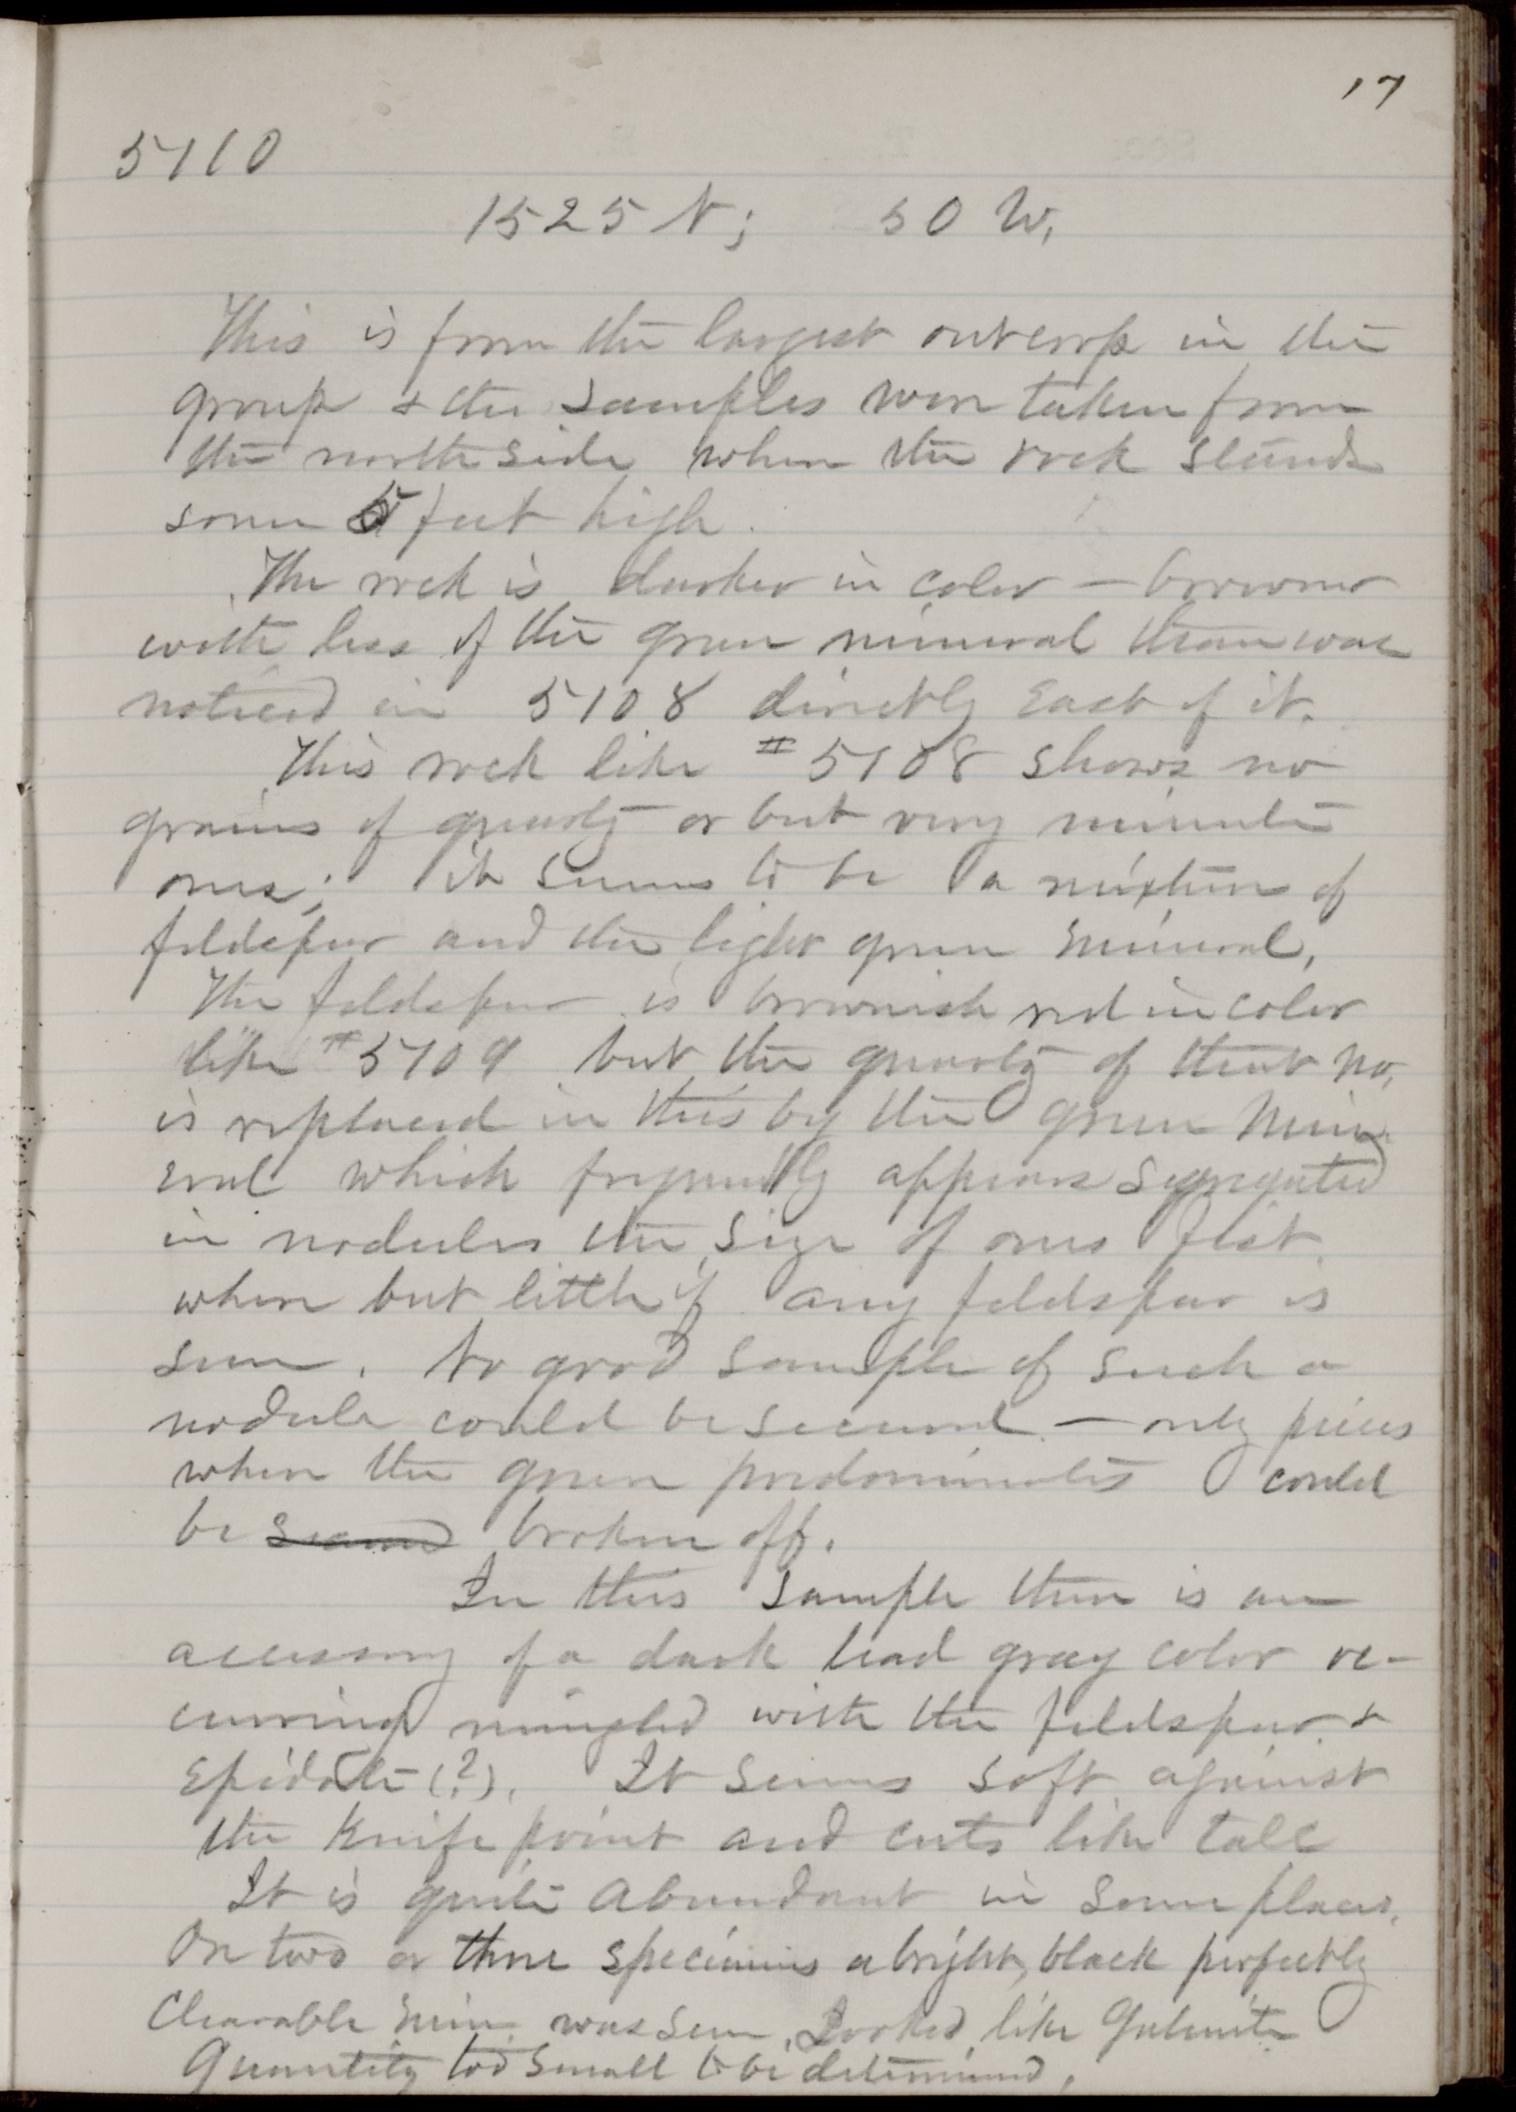 17
5110
1525 N; 50 W.
This is from the largest outcrop in the
group & the samples were taken from
the north side where the rock stands
some 5 feet high.
The rock is darker in color — browner
with less of the green mineral than was
noticed in 5108 directly East of it.
This rock like #5108 shows no
grains of quartz or but very minute
ones; it seems to be a mixture of
feldspar and the light green mineral.
The feldspar is brownish red in color
like #5109 but the quartz of that no.
is replaced in this by the green min
eral which frequently appears segregated
in nodules the size of ones fist
where but little if any feldspar is
seen. No good sample of such a
nodule could be secured — only pieces
where the green predominates could
be secured broken off.
In this sample there is an
accessory of a dark lead gray color oc-
curring mingled with the feldspar &
Epidote (?). It seems soft against
the knife point and cuts like talc
It is quite abundant in some places.
On two or three specimens a bright, black perfectly
Cleavable min. was seen. Looked like Galenite
Quantity too small to be determined.